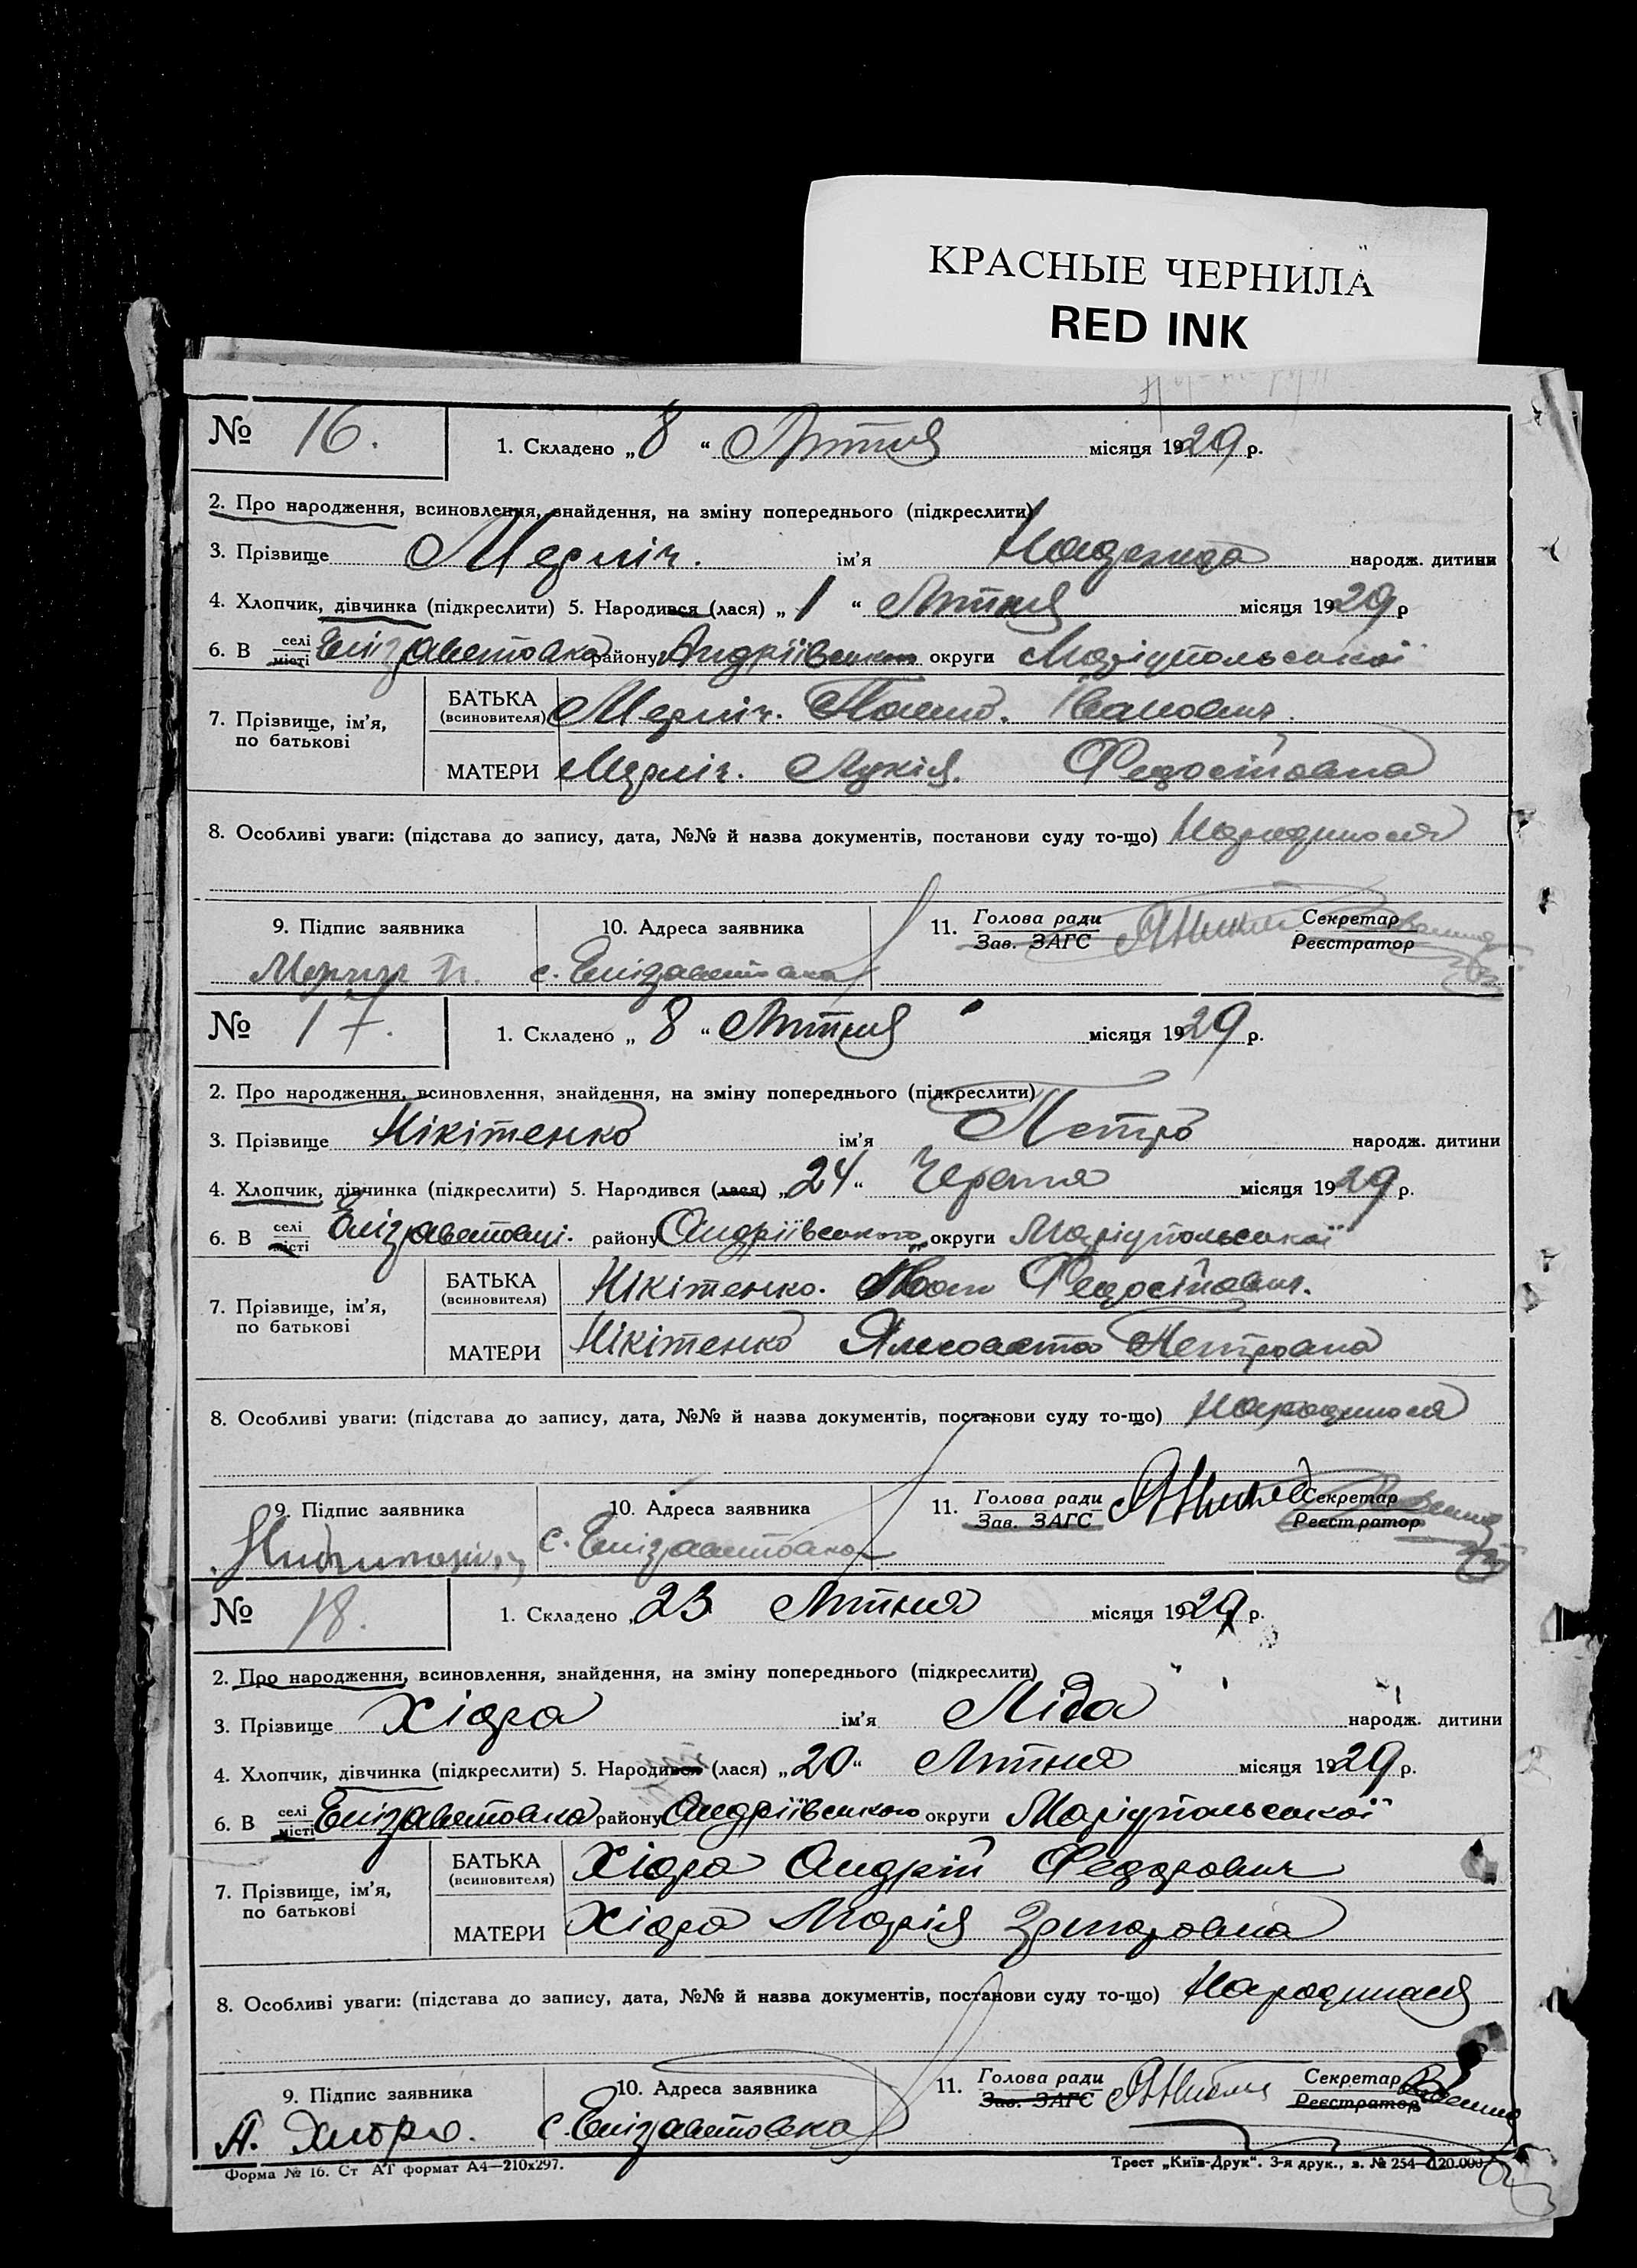 КРАСНЫЕ ЧЕРНИЛА
RED INK
№ 16. 1. Складено „ 8 “ Лютня місяця 1929 р.
2. Про народження, всиновлення, знайдення, на зміну попереднього (підкреслити)
3. Прізвище ім’я Надежда народж. дитини
4. Хлопчик, дівчинка (підкреслити) 5. Народився (лася) „ 1 “ Лютня місяця 1929 р
6. В селі Елізаветовка району Андріївського округи Маріупольської
місті
7. Прізвище, ім’я, по батькові БАТЬКА (всиновителя) Іванович.
МАТЕРИ Лукія. Федосіївна
8. Особливі уваги: (підстава до запису, дата, №№ й назва документів, постанови суду то-що) Народилося
9. Підпис заявника 10. Адреса заявника 11. Голова ради Секретар
Зав. ЗАГС Реєстратор
с. Елізаветовка
№ 17. 1. Складено „ 8 “ Лютня місяця 1929 р.
2. Про народження, всиновлення, знайдення, на зміну попереднього (підкреслити)
3. Прізвище Нікітенко ім’я Петро народж. дитини
4. Хлопчик, дівчинка (підкреслити) 5. Народився (лася) „ 24 “ місяця 1929 р.
6. В селі Елізаветовці. району Андріївського округи Маріупольської
місті
7. Прізвище, ім’я, по батькові БАТЬКА (всиновителя) Нікітенко. Іван Федосійович.
МАТЕРИ Нікітенко Петровна
8. Особливі уваги: (підстава до запису, дата, №№ й назва документів, постанови суду то-що) Народилося
9. Підпис заявника 10. Адреса заявника 11. Голова ради Секретар
Зав. ЗАГС Реєстратор
с. Елізаветовка
№ 18. 1. Складено „ 23 Лютня місяця 1929 р.
2. Про народження, всиновлення, знайдення, на зміну попереднього (підкреслити)
3. Прізвище Хідра ім’я Ліда народж. дитини
4. Хлопчик, дівчинка (підкреслити) 5. Народився (лася) „ 20 “ Лютня місяця 1929 р.
6. В селі Елізаветовка району Андріївського округи Маріупольської
місті
7. Прізвище, ім’я, по батькові БАТЬКА (всиновителя) Хідра Андрій Федорович
МАТЕРИ Хідра Марія
8. Особливі уваги: (підстава до запису, дата, №№ й назва документів, постанови суду то-що) Народилася
9. Підпис заявника 10. Адреса заявника 11. Голова ради Секретар
Зав. ЗАГС Реєстратор
А. с. Елізаветовка
Форма № 16. Ст АТ формат А4—210х297. Трест „Київ-Друк“. 3-я друк., з. № 254—120.000